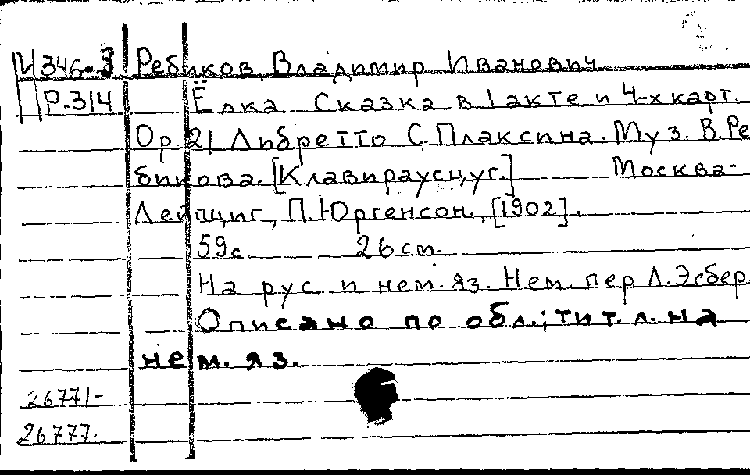 И 346-3 Ребиков, Владимир Иванович
Р-314 Ёлка. Сказка в 1 акте и 4-х карт.
Ор 21 Либретто С. Плаксина. Муз. В. Ре
бикова. [Клавираусцуг.] Москва-
Лейпциг, П. Юргенсон, [1902].
59с. 26 см.
На рус. и нем. яз. Нем. пер Л. Эсбер
Описано по обл.; тит. л. на
нем. яз.
26771-
26777.